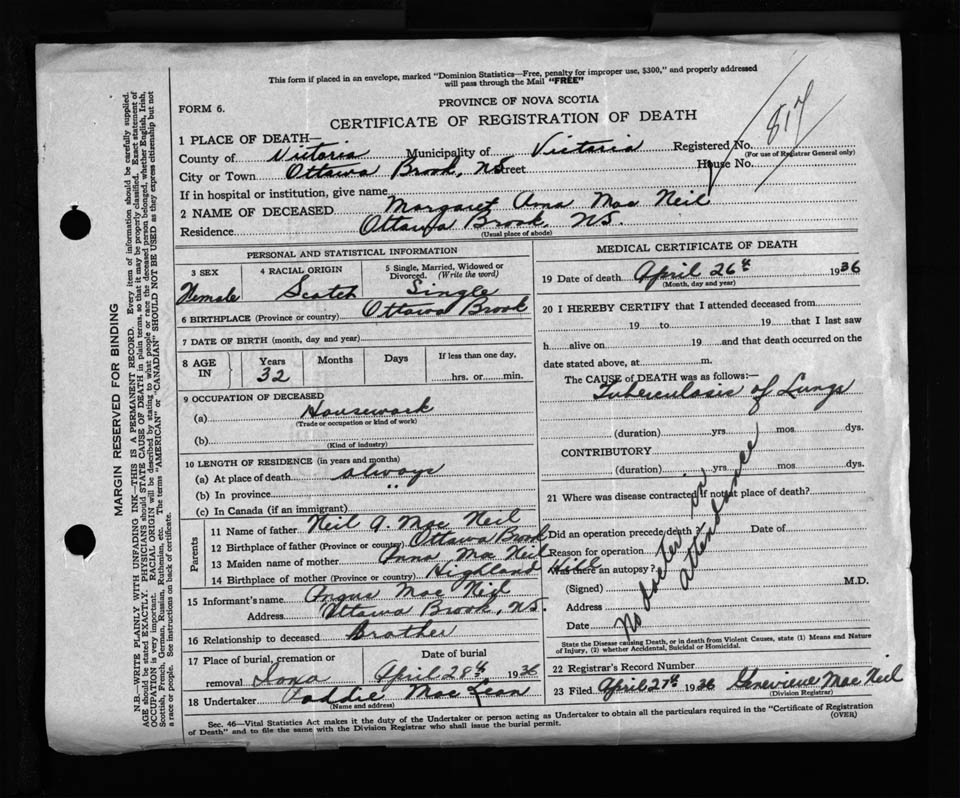 This form if placed in an envelope, marked "Dominion Statistics—Free, penalty for improper use, $300," and properly addressed
will pass through the Mail "FREE"
FORM 6.
PROVINCE OF NOVA SCOTIA
CERTIFICATE OF REGISTRATION OF DEATH
817
1 PLACE OF DEATH—
County of Victoria Municipality of Victoria Registered No.
(For use of Registrar General only)
City or Town Ottawa Brook, NS Street House No.
If in hospital or institution, give name
2 NAME OF DECEASED Margaret Anna Mac Neil
Residence Ottawa Brook, NS.
(Usual place of abode)
PERSONAL AND STATISTICAL INFORMATION
3 SEX 4 RACIAL ORIGIN 5 Single, Married, Widowed or Divorced. (Write the word)
Female Scotch Single
6 BIRTHPLACE (Province or country) Ottawa Brook
7 DATE OF BIRTH (month, day and year)
8 AGE IN Years Months Days If less than one day,
32 hrs. or min.
9 OCCUPATION OF DECEASED
(a) Housework
(Trade or occupation or kind of work)
(b)
(Kind of industry)
10 LENGTH OF RESIDENCE (in years and months)
(a) At place of death always
(b) In province "
(c) In Canada (if an immigrant)
Parents
11 Name of father Neil A. Mac Neil
12 Birthplace of father (Province or country) Ottawa Brook
13 Maiden name of mother Anna Mac Neil
14 Birthplace of mother (Province or country) Highland Hill
15 Informant's name Angus Mac Neil
Address Ottawa Brook, NS.
16 Relationship to deceased Brother
17 Place of burial, cremation or removal Iona Date of burial April 28th 1936
18 Undertaker Paddie Mac Lean
(Name and address)
MEDICAL CERTIFICATE OF DEATH
19 Date of death April 26th 1936
(Month, day and year)
20 I HEREBY CERTIFY that I attended deceased from
19 to 19 that I last saw
h alive on 19 and that death occurred on the
date stated above, at m.
The CAUSE of DEATH was as follows:—
Tuberculosis of Lungs
(duration) yrs. mos. dys.
CONTRIBUTORY
(duration) yrs. mos. dys.
21 Where was disease contracted if not at place of death?
Did an operation precede death? Date of
Reason for operation
Was there an autopsy?
(Signed) M.D.
Address
Date
No doctor in attendance
State the Disease causing Death, or in death from Violent Causes, state (1) Means and Nature
of Injury, (2) whether Accidental, Suicidal or Homicidal.
22 Registrar's Record Number
23 Filed April 27th 1936 Genevieve Mac Neil
(Division Registrar)
Sec. 46—Vital Statistics Act makes it the duty of the Undertaker or person acting as Undertaker to obtain all the particulars required in the "Certificate of Registration
of Death" and to file the same with the Division Registrar who shall issue the burial permit.
(OVER)
MARGIN RESERVED FOR BINDING
N.B.—WRITE PLAINLY WITH UNFADING INK—THIS IS A PERMANENT RECORD. Every item of information should be carefully supplied.
AGE should be stated EXACTLY. PHYSICIANS should STATE CAUSE OF DEATH in plain terms, so that it may be properly classified. Exact statement of
OCCUPATION is very important. RACIAL ORIGIN will be described by stating to what people or race the deceased person belonged, whether English, Irish,
Scottish, French, German, Russian, Ruthenian, etc. The terms "AMERICAN" or "CANADIAN" SHOULD NOT BE USED as they express citizenship but not
a race or people. See instructions on back of certificate.